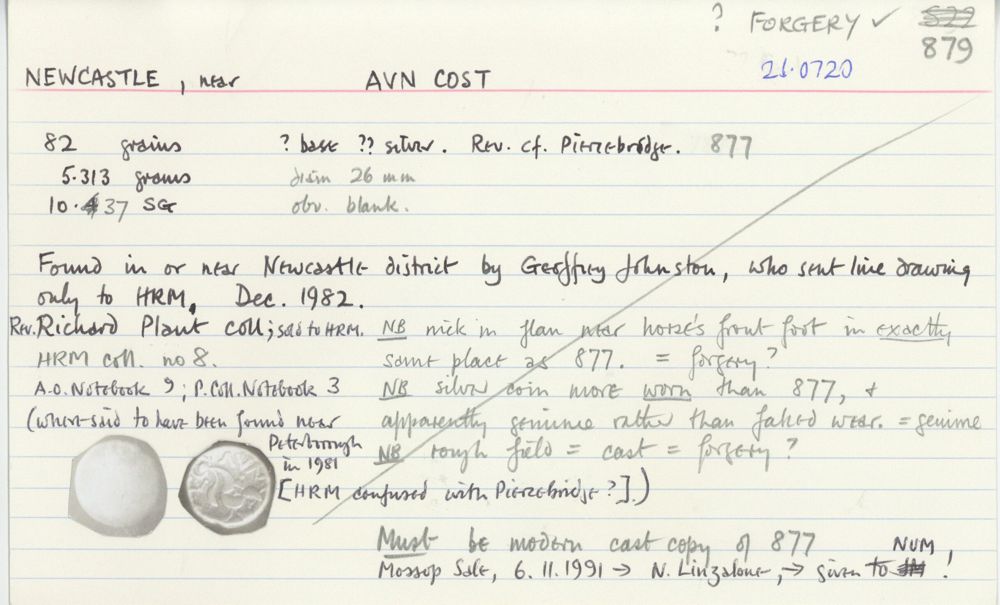 ? FORGERY ✓ 522
879
NEWCASTLE, near AVN COST 21.0720
82 grains ? base ?? silver. Rev. cf. Piercebridge. 877
5.313 grams diam 26 mm
10.37 SG obv. blank.
Found in or near Newcastle district by Geoffrey Johnston, who sent line drawing
only to HRM, Dec. 1982.
Rev. Richard Plant coll; sold to HRM. NB nick in flan near horse's front foot in exactly
HRM coll. no 8. same place as 877. = forgery?
A.O. Notebook 9; P. Coll. Notebook 3 NB silver coin more worn than 877, &
(where said to have been found near apparently genuine rather than faked wear. = genuine
Peterborough NB rough field = cast = forgery?
in 1981
[HRM confused with Piercebridge?].)
Must be modern cast copy of 877
Mossop Sale, 6.11.1991 → N. Linzalone, → given to NUM!